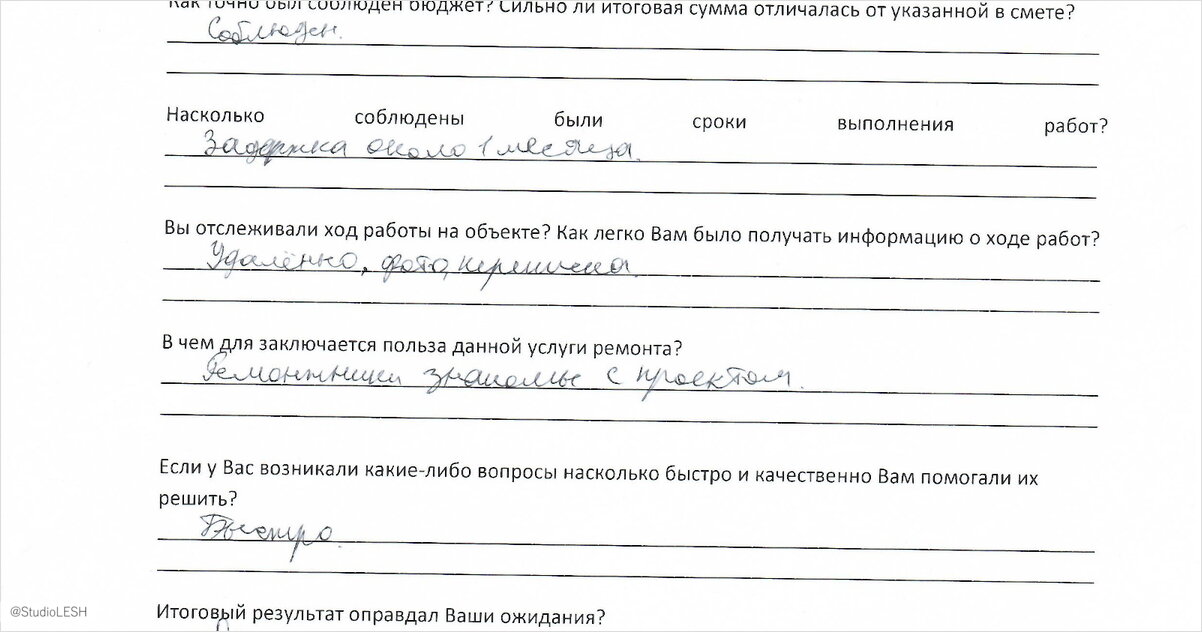 Как точно был соблюден бюджет? Сильно ли итоговая сумма отличалась от указанной в смете?
Соблюден.
Насколько соблюдены были сроки выполнения работ?
Задержка около 1 месяца.
Вы отслеживали ход работы на объекте? Как легко Вам было получать информацию о ходе работ?
Удалённо, фото, переписка.
В чем для заключается польза данной услуги ремонта?
Ремонтники знакомы с проектом.
Если у Вас возникали какие-либо вопросы насколько быстро и качественно Вам помогали их
решить?
Быстро.
Итоговый результат оправдал Ваши ожидания?
@StudioLESH